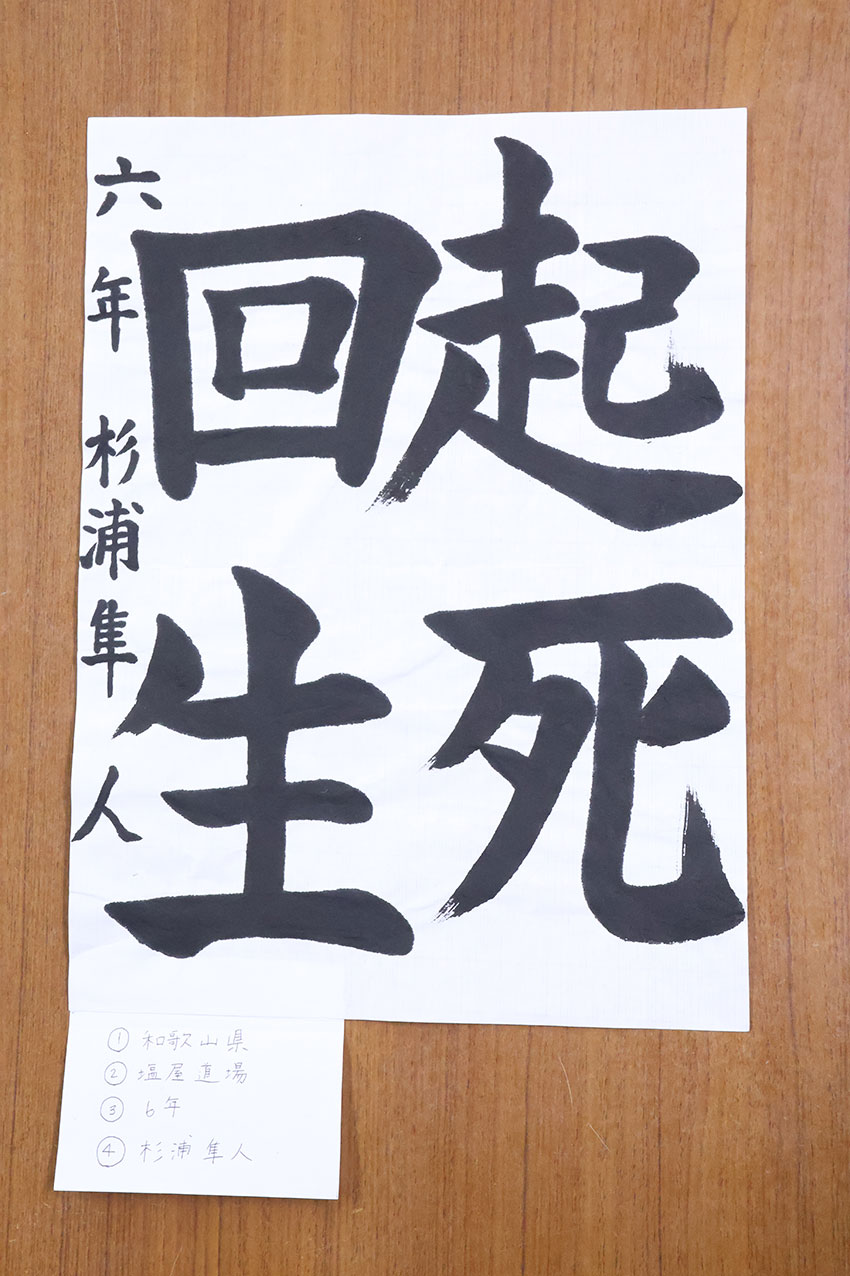 起死
回生
六年 杉浦隼人
① 和歌山県
② 塩屋道場
③ 6年
④ 杉浦隼人